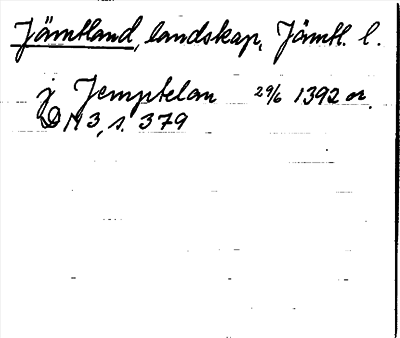 Jämtland, landskap, Jämtl. l.
j Jemptelan 29/6 1392 or.
DN 3, s. 379